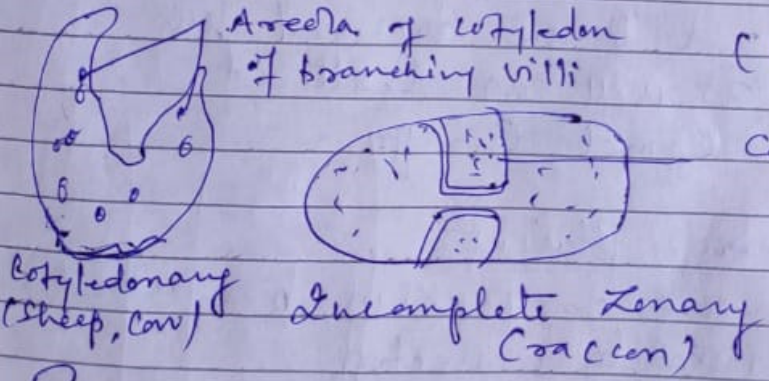 Areola of cotyledon
of branching villi
Cotyledonary
(Sheep, Cow)
Incomplete Zonary
(raccon)